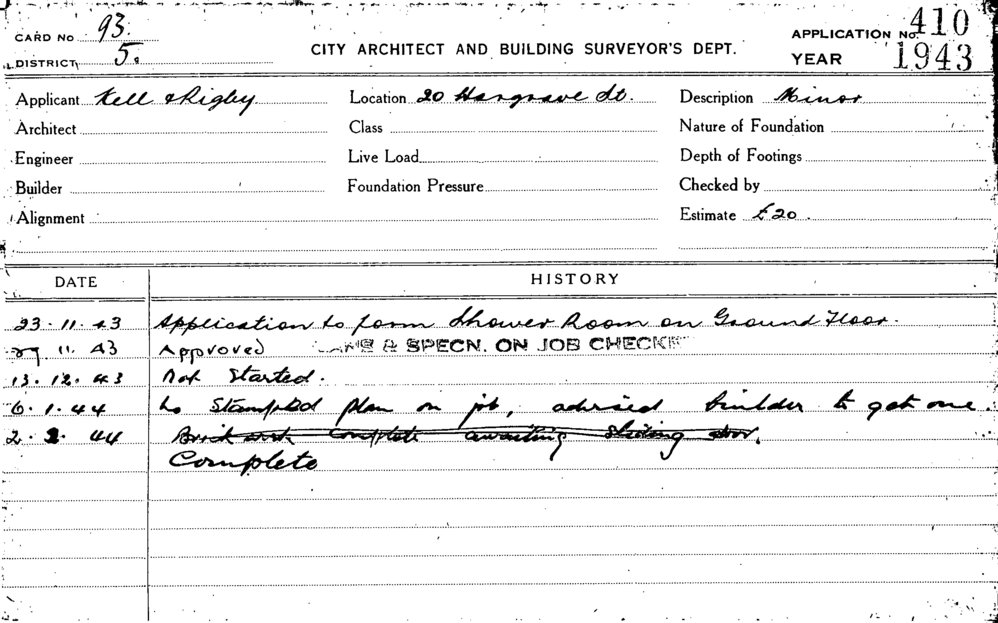 CARD No 93.
DISTRICT 5.
CITY ARCHITECT AND BUILDING SURVEYOR'S DEPT.
APPLICATION No. 410
YEAR 1943
Applicant Kell & Rigby Location 20 Hargrave St. Description Minor
Architect Class Nature of Foundation
Engineer Live Load Depth of Footings
Builder Foundation Pressure Checked by
Alignment Estimate £20.
DATE HISTORY
23.11.43 Application to form Shower Room on Ground Floor.
29.11.43 Approved PLANS & SPECN. ON JOB CHECKED
13.12.43 Not Started.
6.1.44 no Stamped plan on job, advised builder to get one
2.2.44 Brick work complete awaiting sliding door.
Complete